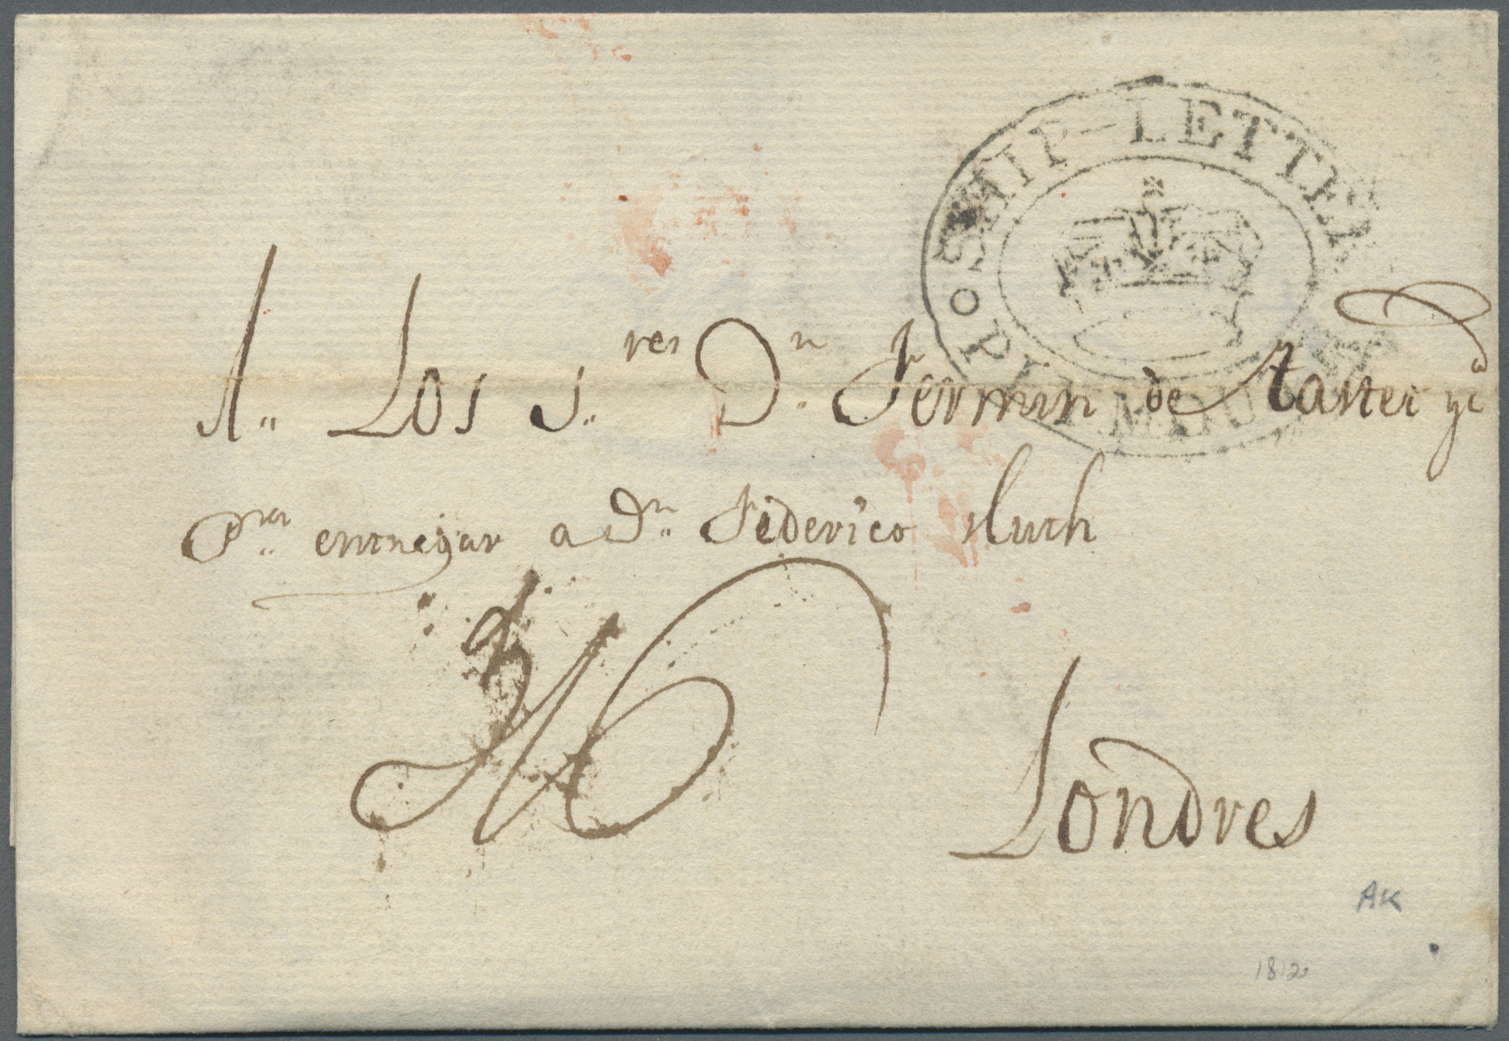 SHIP-LETTER
PLYMOUTH
A.. Los S.res D.n Fermin de Tastet y C.a
P.a entregar a D.n Federico Huth
Londres
AK
1812